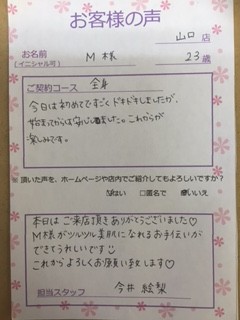 お客様の声
山口 店
お名前
(イニシャル可)
M 様
23 歳
ご契約コース 全身
今日は初めてですごくドキドキしましたが、
始まってからは安心しました。これからが
楽しみです。
頂いた声を、ホームページや店内でご紹介してもよろしいですか?
はい □匿名で いいえ
本日はご来店頂きありがとうございました♡
M様がツルツル美肌になれるお手伝いが
できてうれしいです
これからよろしくお願い致します♡
担当スタッフ 今井 絵梨